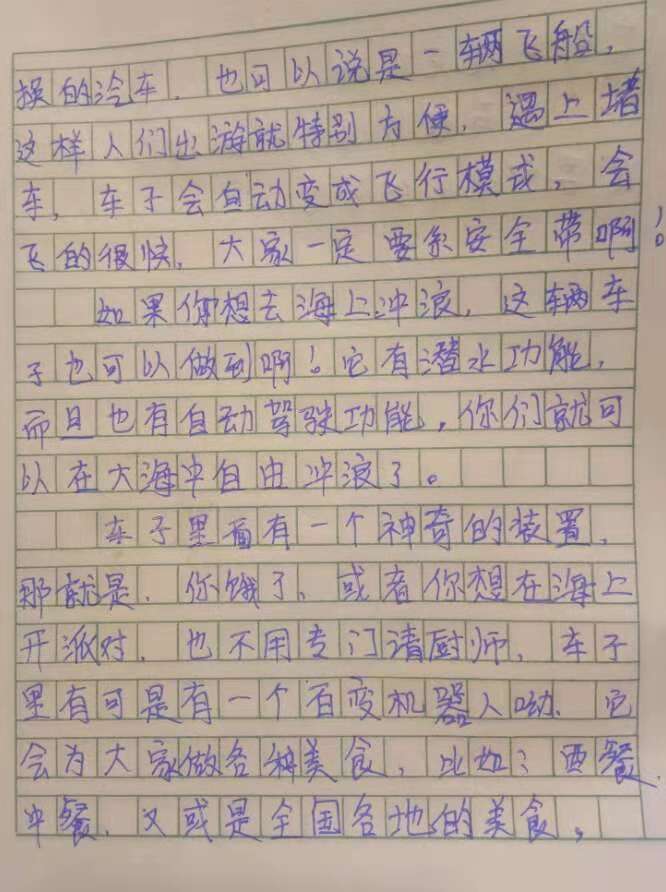 换的汽车，也可以说是一辆飞船，
这样人们出游就特别方便，遇上堵
车，车子会自动变成飞行模式，会
飞的很快，大家一定要系安全带啊
！。
如果你想去海上冲浪，这辆车
子也可以做到啊！它有潜水功能，
而且也有自动驾驶功能，你们就可
以在大海中自由冲浪了。
车子里面有一个神奇的装置，
那就是，你饿了，或者你想在海上
开派对，也不用专门请厨师，车子
里有可是有一个百变机器人呦，它
会为大家做各种美食，比如：西餐，
中餐，又或是全国各地的美食，